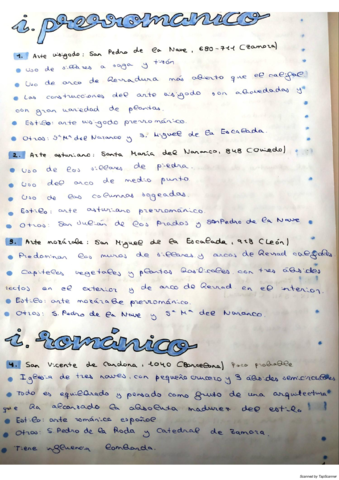 i. prerrománico
1. Arte visigodo: San Pedro de la Nave, 680-711 (Zamora)
• Uso de sillares a soga y tizón
• Uso de arco de herradura más abierto que el califal
• Las construcciones del arte visigodo son abovedadas y
con gran variedad de plantas.
• Estilo: arte visigodo prerrománico.
• Otros: Sª Mª del Naranco y S. Miguel de la Escalada.
2. Arte asturiano: Santa María del Naranco, 848 (Oviedo)
• Uso de los sillares de piedra.
• Uso del arco de medio punto
• Uso de las columnas sogeadas.
• Estilo: arte asturiano prerrománico
• Otros: San Julián de los Prados y San Pedro de la Nave
3. Arte mozárabe: San Miguel de la Escalada, 913 (León)
• Predominan los muros de sillares y arcos de herrad califales
• Capiteles vegetales y plantas basilicales con tres ábsides
rectos en el exterior y de arco de herrad en el interior.
• Estilo: arte mozárabe prerrománico.
• Otros: S. Pedro de la Nave y Sª Mª del Naranco.
i. románico
4. San Vicente de Cardona, 1040 (Barcelona) Poco probable
• Iglesia de tres naves, con pequeño crucero y 3 ábsides semicirculares
• Todo es equilibrado y pensado como fruto de una arquitectura
que ha alcanzado la absoluta madurez del estilo
• Estilo: arte románico español
• Otros: S. Pedro de la Roda y Catedral de Zamora
• Tiene influencia lombarda.
Scanned by TapScanner